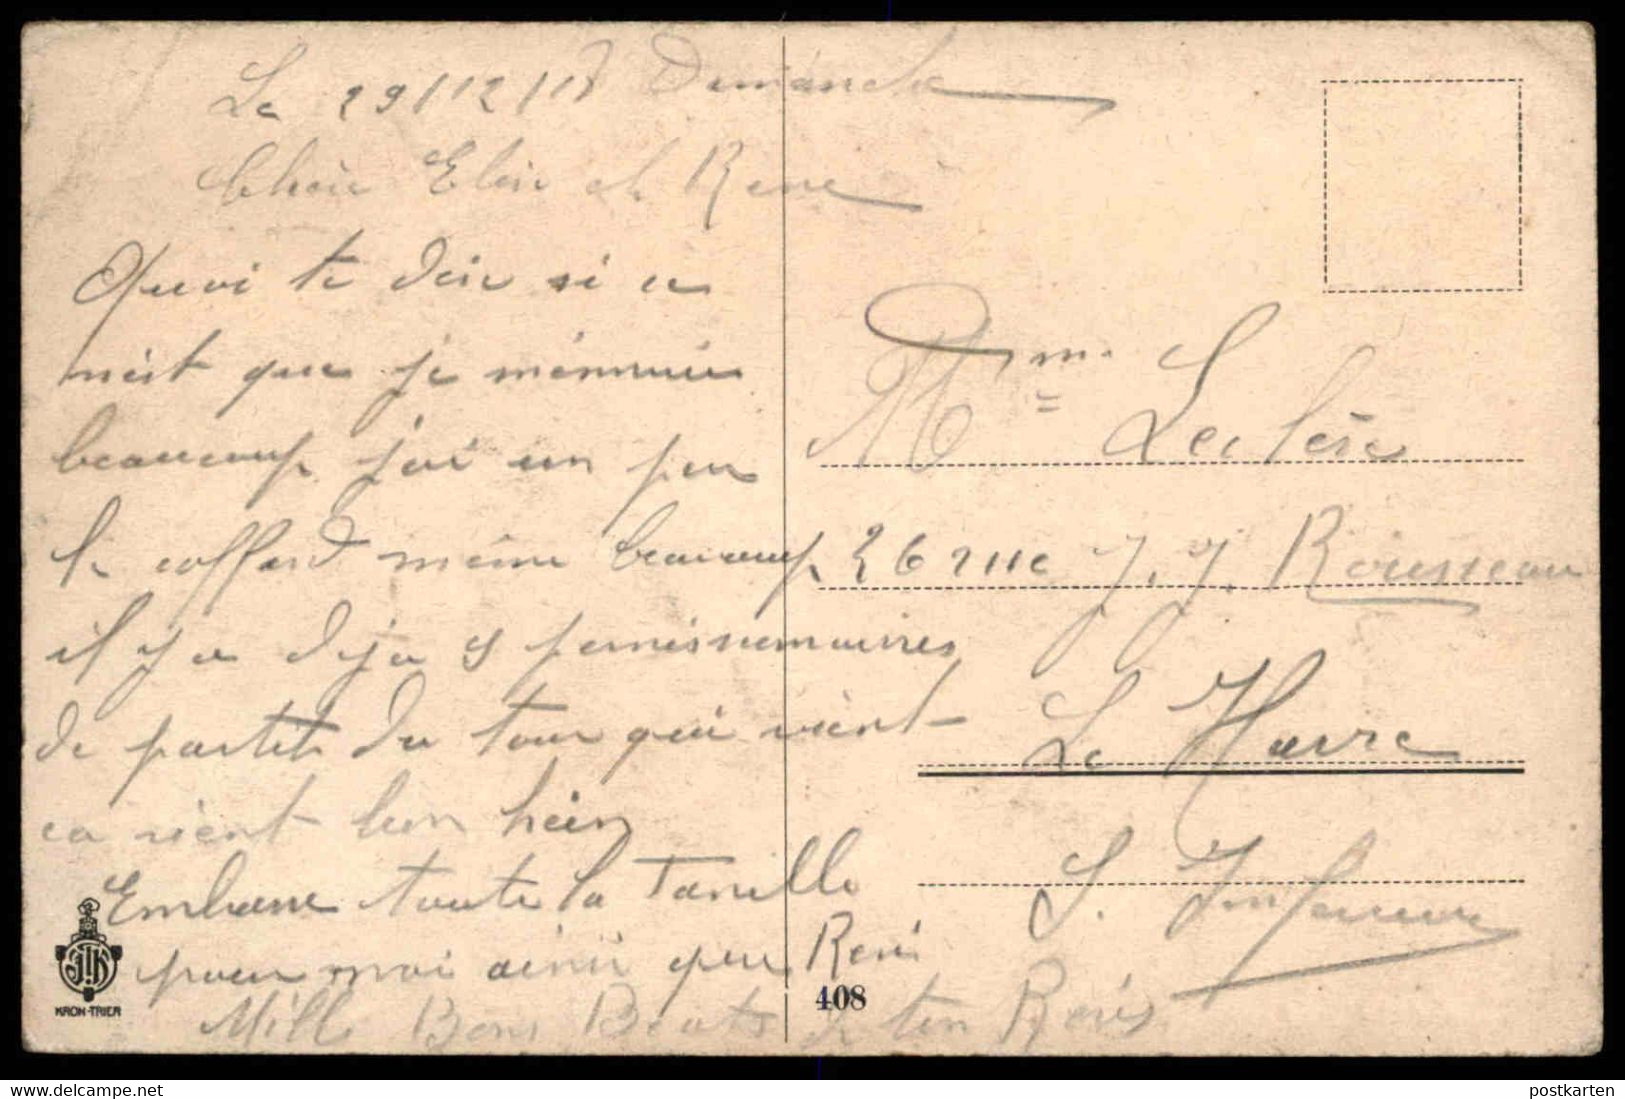 Le 29/12/18 Dimanche
Chère Elise et René
Quoi te dire si ce
n'est que je m'ennuie
beaucoup j'ai un peu
le caffard même beaucoup
il y a deja 9 permissionnaires
de partit du tour qui vient
ca vient bien hein
Embrasse toute la Famille
pour moi ainsi que René
Mille Bons Becots de ton René
Mme Leclère
26 rue J. J. Rousseau
Le Havre
S. Inferieure
JTK
KRON-TRIER
408
delcampe.net
postkarten